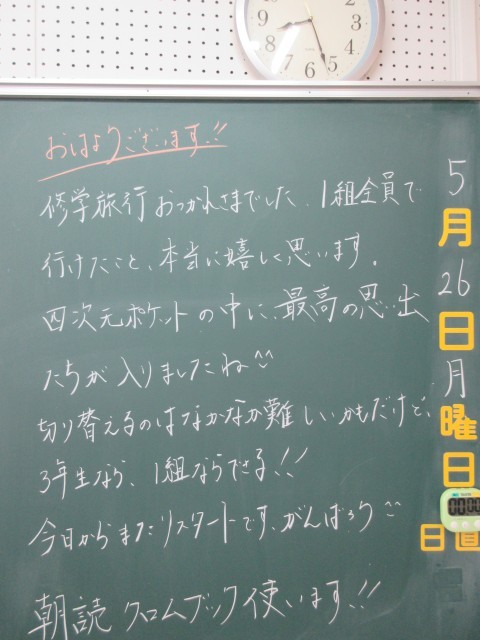 おはようございます!!
修学旅行おつかれさまでした。1組全員で
行けたこと、本当に嬉しく思います。
四次元ポケットの中に、最高の思い出
たちが入りましたね^^
切り替えるのはなかなか難しいかもだけど、
3年生なら、1組ならできる!!
今日からまたリスタートです。がんばろう
朝読 クロムブック使います!!
5
月
26
日
月
曜
日
日直
12
1
2
3
4
5
6
7
8
9